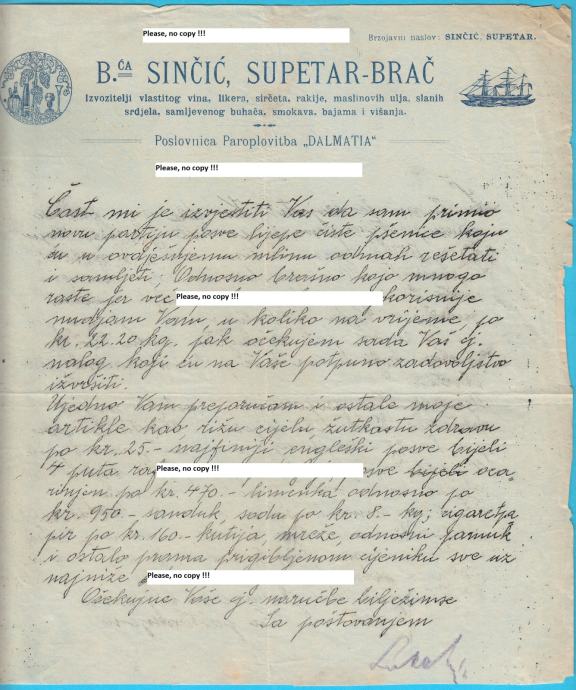 Please, no copy !!!
Brzojavni naslov: SINČIĆ, SUPETAR.
B.ĆA SINČIĆ, SUPETAR-BRAČ
Izvozitelji vlastitog vina, likera, sirćeta, rakije, maslinovih ulja, slanih
srdjela, samljevenog buhača, smokava, bajama i višanja.
Poslovnica Paroplovitba „DALMATIA"
Please, no copy !!!
Čast mi je izvjestiti Vas da sam primio
novu partiju posve lijepe čiste pšenice koju
ću u ovdješnjemu mlinu odmah rešetati
i samljeti; Odnosno brašno kojo mnogo
raste jer vec Please, no copy !!! korisnije
nudjam Vam u koliko na vrijeme po
kr. 22.20 kg. jak očekujem sada Vaš cj.
nalog koji ću na Vaše potpuno zadovoljstvo
izvršiti.
Ujedno Vam preporučam i ostale moje
artikle kao rižu cijelu žutkastu zdravu
po kr. 25.- najfiniji engleški posve bijeli
4 puta Please, no copy !!! bijeli
po kr. 470.- limenka odnosno po
kr. 950.- sanduk, sodu po kr. 8.- kg; cigareta
pir po kr. 160.- kutija, mreže, odnosni pamuk
i ostalo prama prigibljenom cijeniku sve uz
najniže Please, no copy !!!
Očekujuć Vaše cj. naručbe bilježimse
Sa poštovanjem